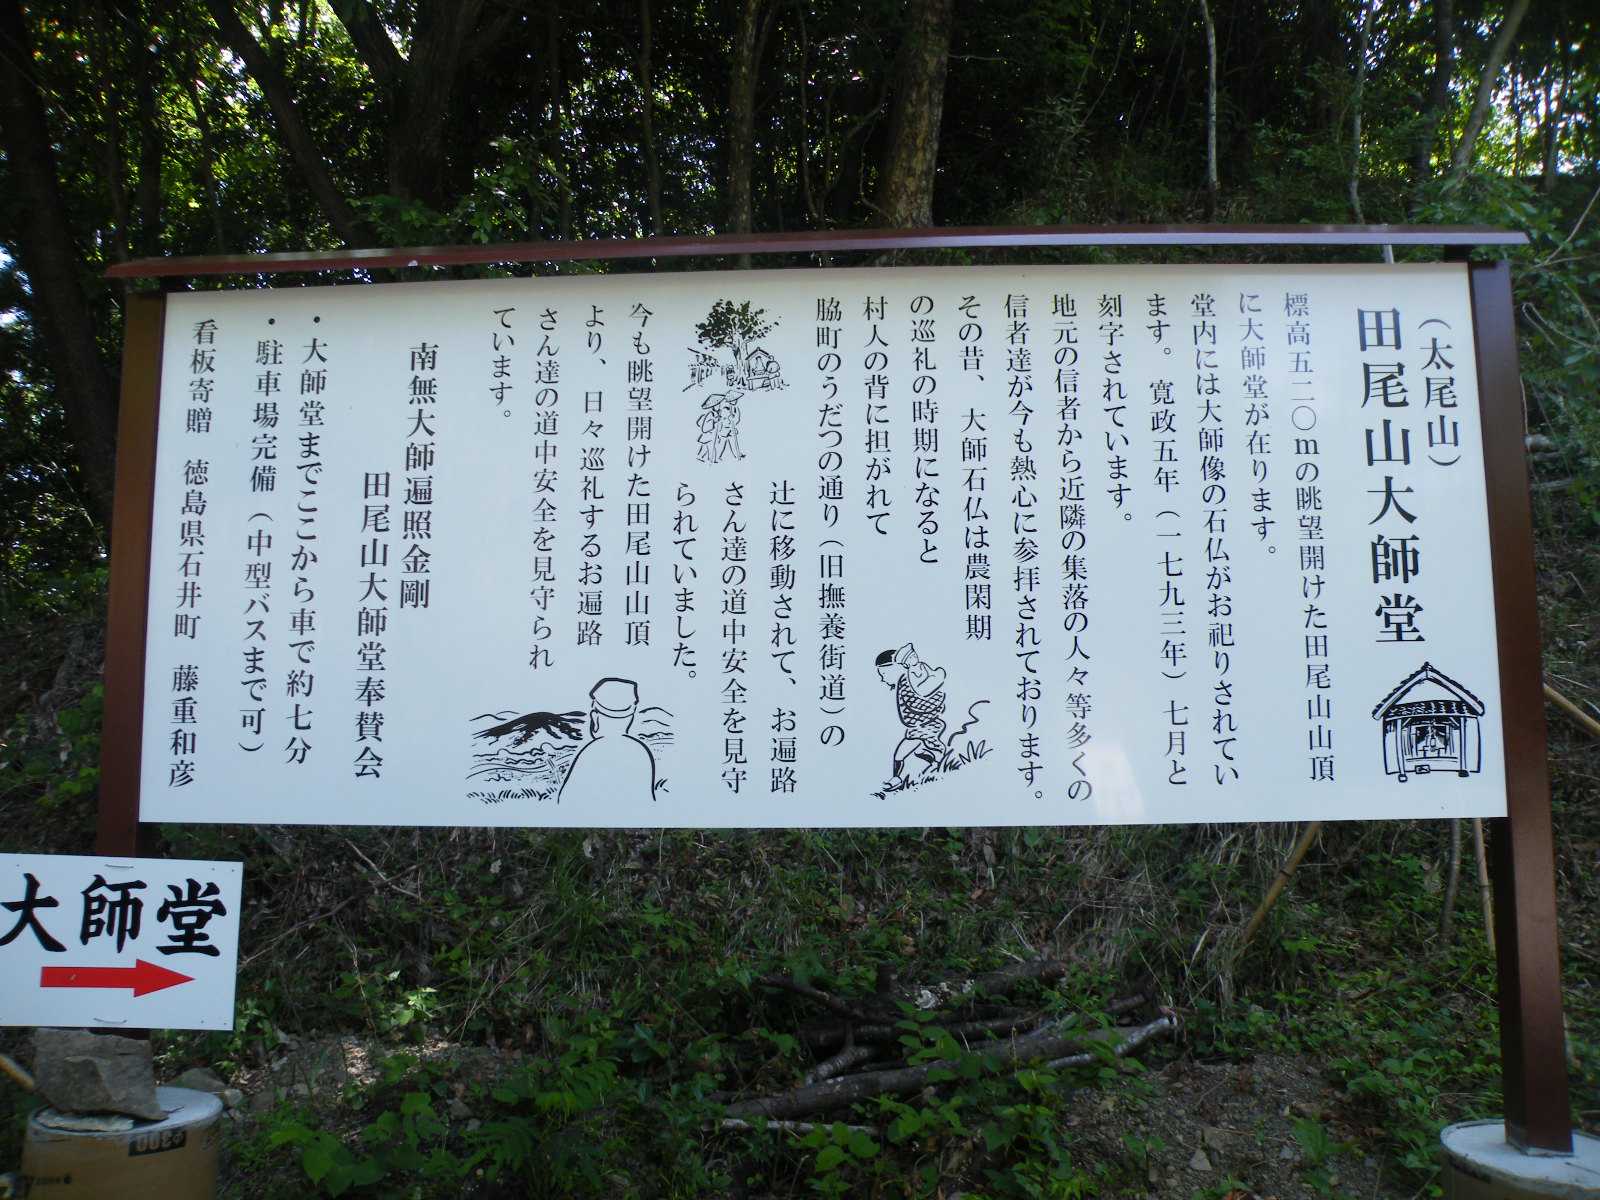 （太尾山）
田尾山大師堂
標高五二〇ｍの眺望開けた田尾山山頂
に大師堂が在ります。
堂内には大師像の石仏がお祀りされてい
ます。寛政五年（一七九三年）七月と
刻字されています。
地元の信者から近隣の集落の人々等多くの
信者達が今も熱心に参拝されております。
その昔、大師石仏は農閑期
の巡礼の時期になると
村人の背に担がれて
脇町のうだつの通り（旧撫養街道）の
辻に移動されて、お遍路
さん達の道中安全を見守
られていました。
今も眺望開けた田尾山山頂
より、日々巡礼するお遍路
さん達の道中安全を見守られ
ています。
南無大師遍照金剛
田尾山大師堂奉賛会
・大師堂までここから車で約七分
・駐車場完備（中型バスまで可）
看板寄贈 徳島県石井町 藤重和彦
大師堂
300